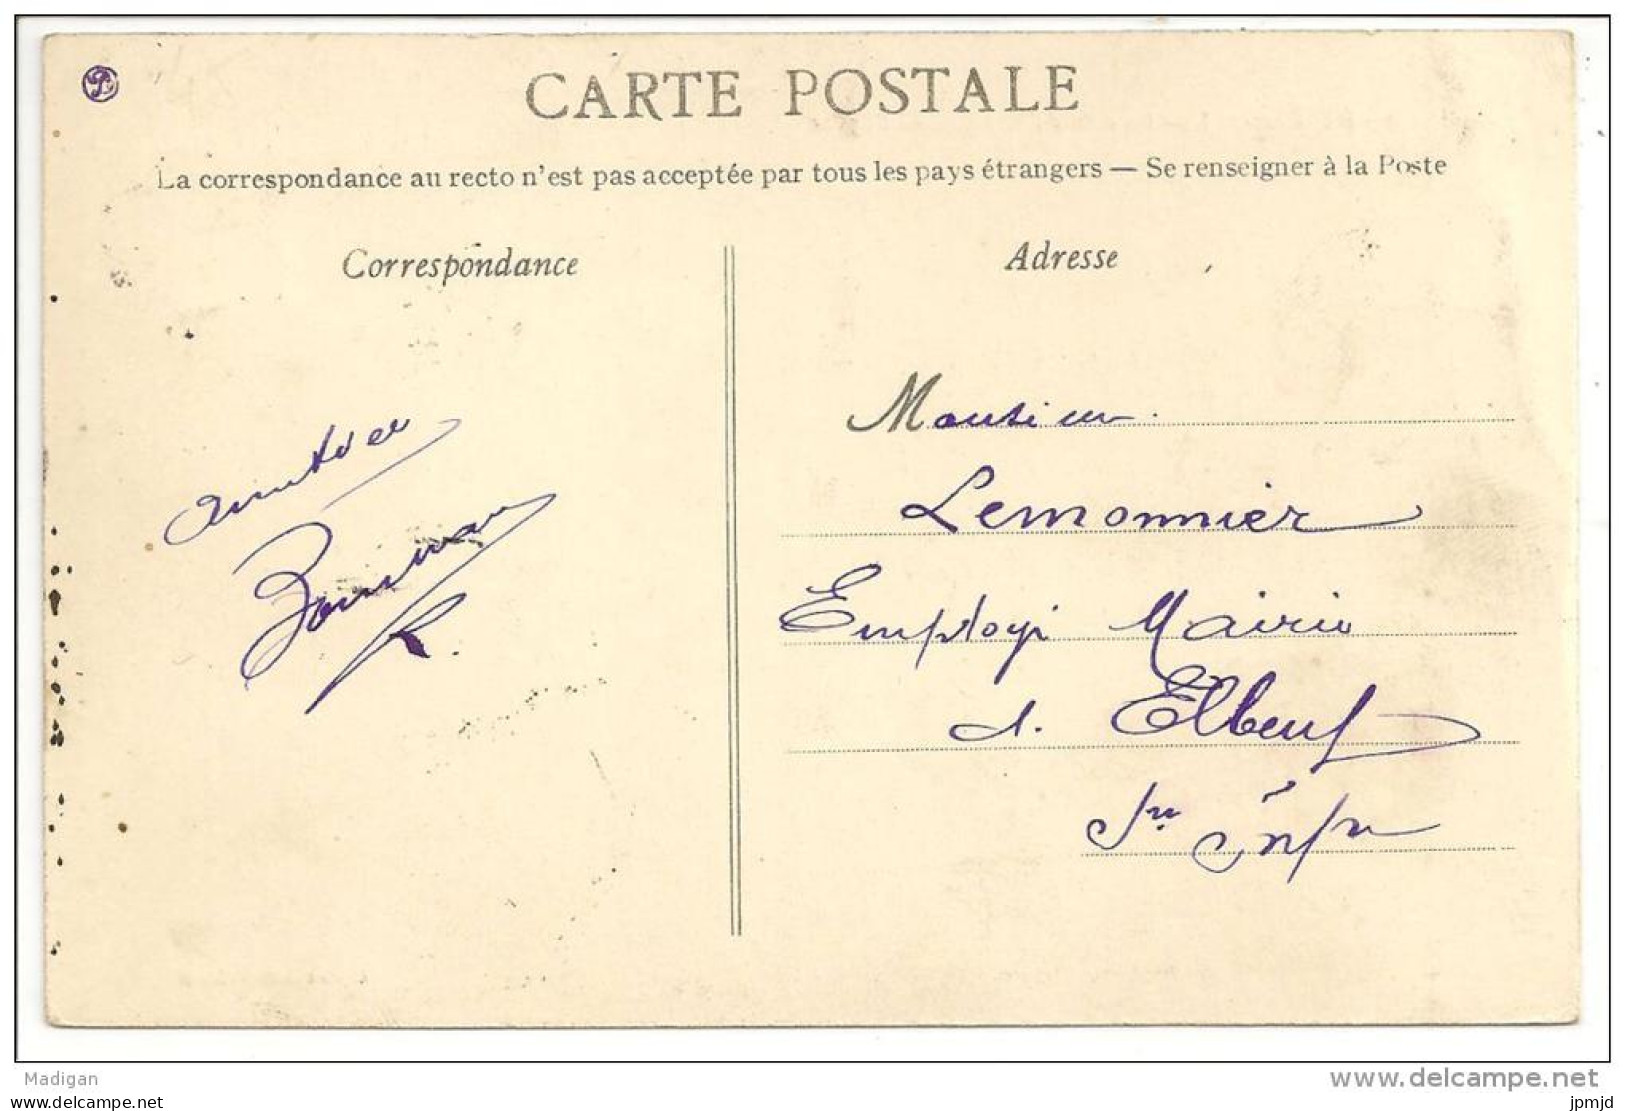 CARTE POSTALE
La correspondance au recto n'est pas acceptée par tous les pays étrangers — Se renseigner à la Poste
Correspondance
Adresse
Monsieur
Lemonnier
Employé Mairie
d. Elbeuf
Sre Infre
Madigan
www.delcampe.net
jpmjd